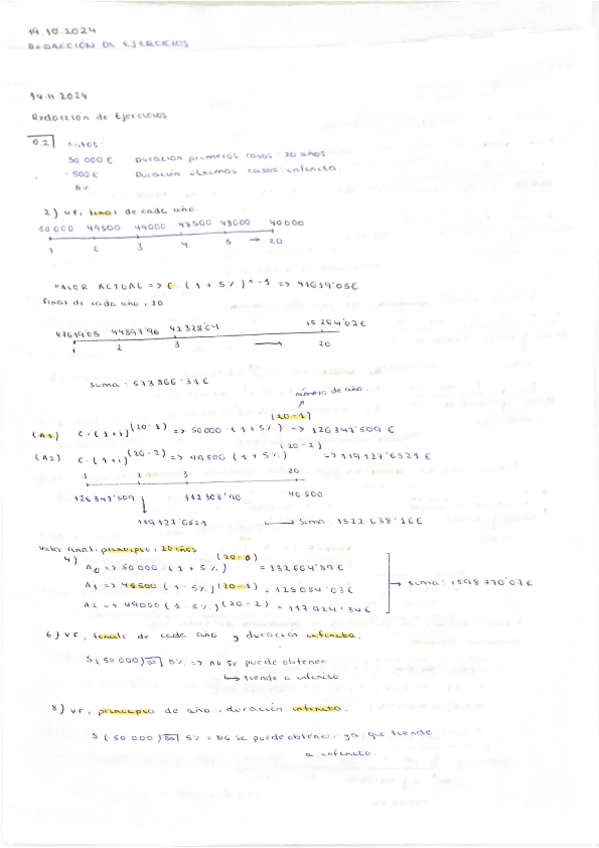 19.10.2024
REDACCIÓN DE EJERCICIOS
14.11.2024
Redacción de Ejercicios
0.2
50 000 € Duración primeros casos: 20 años
500€ Duración últimos casos infinita.
5%
2) VF, final de cada año.
50000 49500 49000 48500 48000 40000
1 2 3 4 5 → 20
VALOR ACTUAL => C · (1 + 5%)^-1 => 47619'05€
final de cada año, 20
47619'05 44897'96 42328'04 15264'02€
1 2 3 → 20
Suma: 573866'31€
número de año.
(A1) C·(1+i)^(20-1) => 50000·(1+5%)^(20-1) => 126347'509 €
(A2) C·(1+i)^(20-2) => 49500 (1+5%)^(20-2) => 119127'6521 €
1 2 3 20
126347'509 112308'90 40500
119127'6521 → Suma: 1522638'16€
Valor final, principio, 20 años
4) A0 => 50000 · (1 + 5%)^(20-0) = 132664'89€
A1 => 49500 (1 + 5%)^(20-1) = 125084'03€
A2 => 49000 (1 · 5%)^(20-2) = 117924'34€
→ suma: 1598770'07€
6) VF, finale de cada año y duración infinita.
S(50 000)∞ 5% => No se puede obtener
↳ tiende a infinito
8) VF, principio de año, duración infinita.
S (50 000)∞ 5% = No se puede obtener, ya que tiende
a infinito.